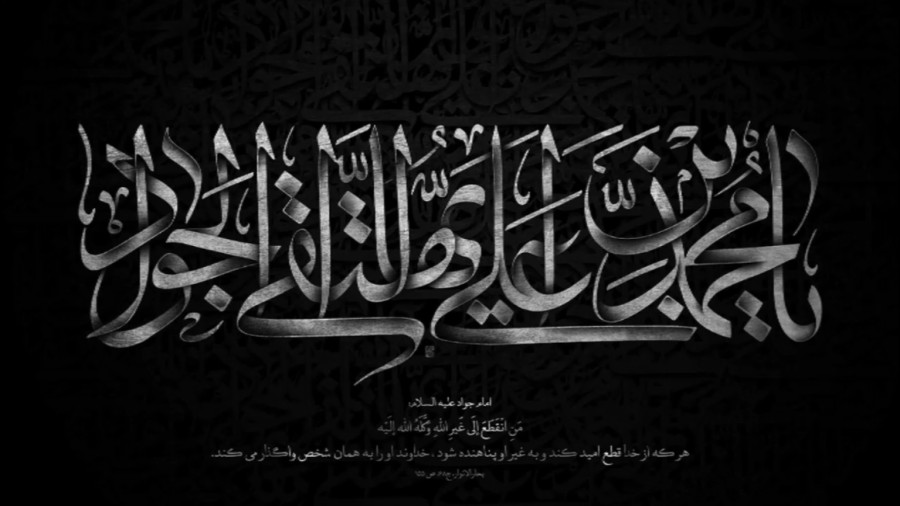 یا محمد بن علی ایها التقی الجواد
امام جواد علیه السلام:
مَنِ انْقَطَعَ إِلَی غَیرِ اللهِ وَکَّلَهُ الله إِلَیْه
هر که از خدا قطع امید کند و به غیر او پناهنده شود، خداوند او را به همان شخص واگذار می کند.
بحارالانوار، ج۶۸، ص۱۵۵